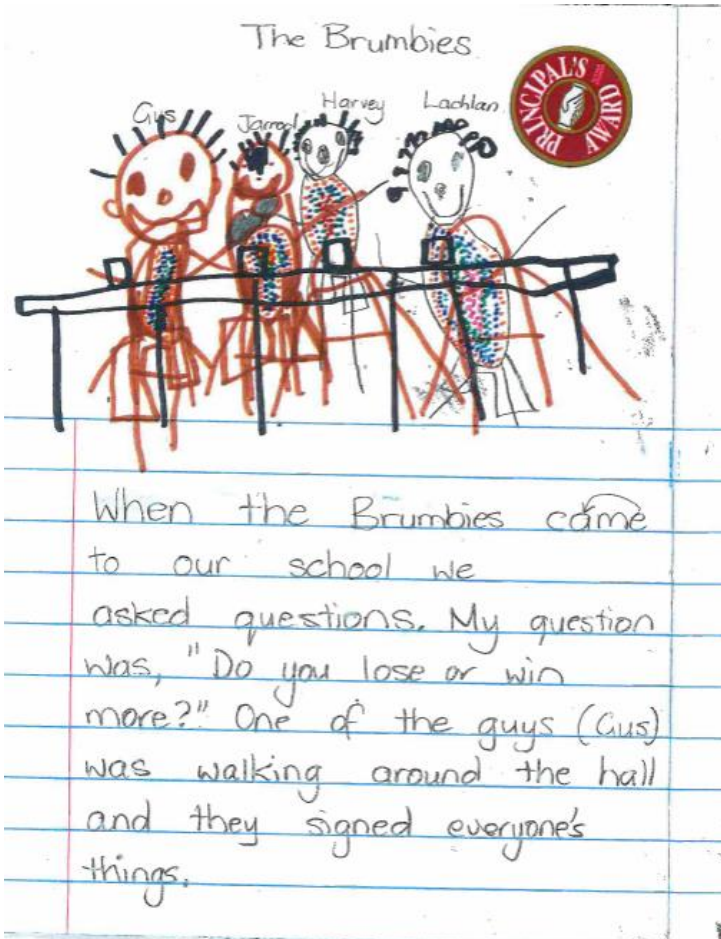 The Brumbies
PRINCIPAL'S AWARD
Gus
Jarrod
Harvey
Lachlan
When the Brumbies came
to our school we
asked questions. My question
was, "Do you lose or win
more?" One of the guys (Gus)
was walking around the hall
and they signed everyone's
things.